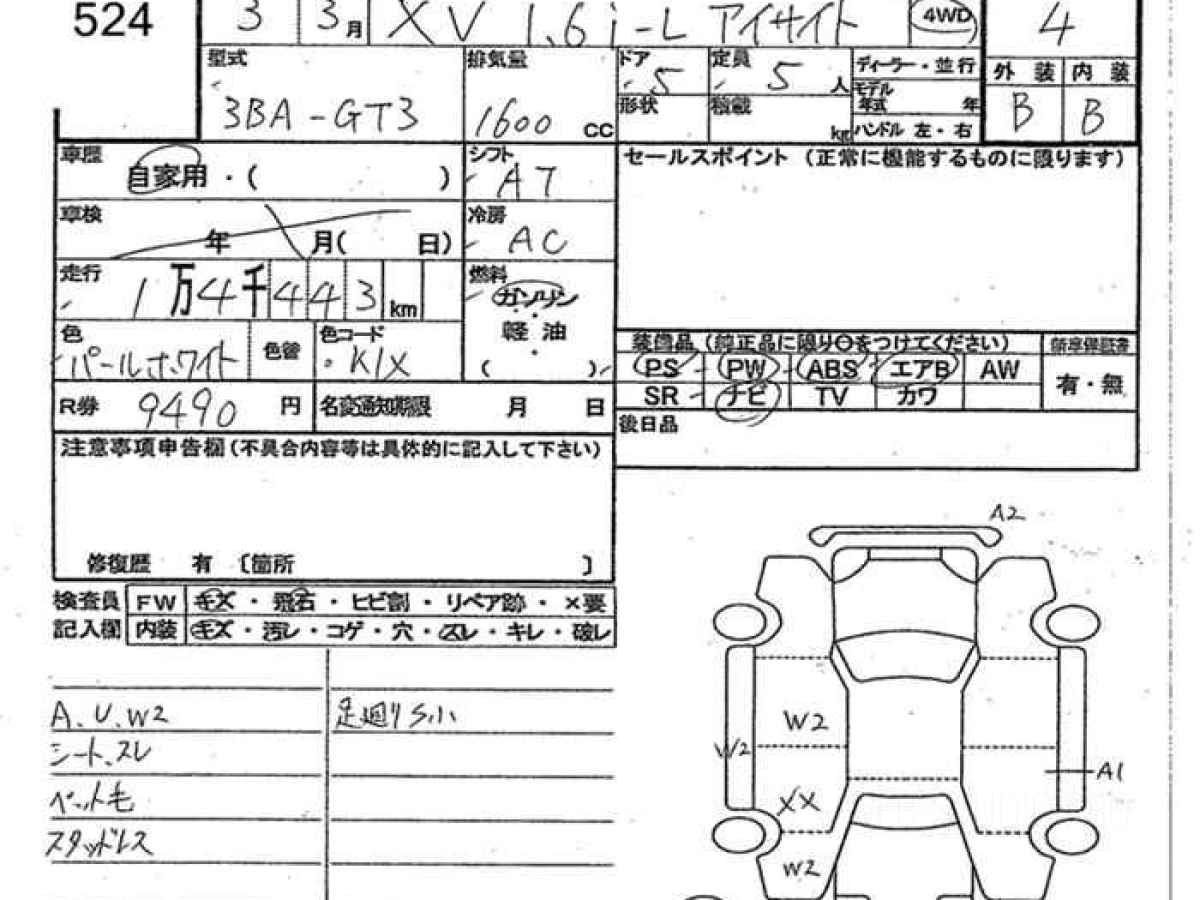 524 3 3月 XV 1.6i-L アイサイト 4WD 4
型式 排気量 ドア 定員 ディーラー・並行 外装 内装
3BA-GT3 1600 CC 5 5人 モデル年式 年 B B
形状 積載 kg ハンドル 左・右
車歴 自家用・( ) シフト AT セールスポイント (正常に機能するものに限ります)
車検 年 月( 日) 冷房 AC
走行 1万4千443km 燃料 ガソリン
軽油
( )
色 パールホワイト 色替 色コード K1X
装備品 (純正品に限り○をつけてください) 新車保証書
PS PW ABS エアB AW 有・無
SR ナビ TV カワ
R券 9490円 名変通知期限 月 日 後日品
注意事項申告欄(不具合内容等は具体的に記入して下さい)
修復歴 有 〔箇所 〕
検査員 FW キズ・飛石・ヒビ割・リペア跡・×要
記入欄 内装 キズ・汚レ・コゲ・穴・スレ・キレ・破レ
A、U、W2 足廻りS小
シート、スレ
ペット毛
スタッドレス
A2
W2
W2
A1
XX
W2